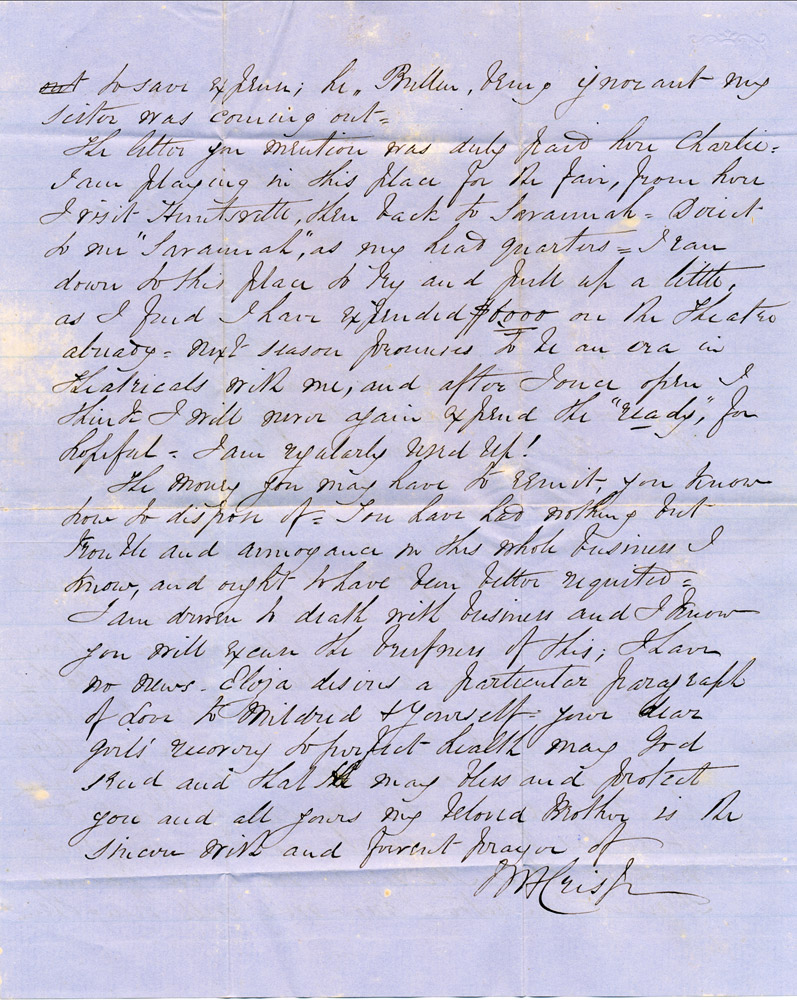 out to save expense; he, Butler, being ignorant my
sister was coming out=
The letter you mention was duly paid here Charlie=
I am playing in this place for the Fair, from here
I visit Huntsville, then back to Savannah= Direct
to me "Savannah", as my head quarters= I ran
down to this place to try and pull up a little,
as I find I have expended $6000 on the Theatre
already= next season promises to be an era in
Theatricals with me, and after I once open I
think I will never again expend the "ready", for
hopeful= I am regularly used up!
The money you may have to remit, you know
how to dispose of= You have had nothing but
trouble and annoyance in this whole business I
know, and ought to have been better requited=
I am driven to death with business and I know
you will excuse the briefness of this; I have
no news. Eliza desires a particular paragraph
of Love to Mildred & yourself= your dear
girls' recovery to perfect health may God
send and that He may bless and protect
you and all yours my beloved Brother is the
sincere wish and fervent prayer of
WH Crisp